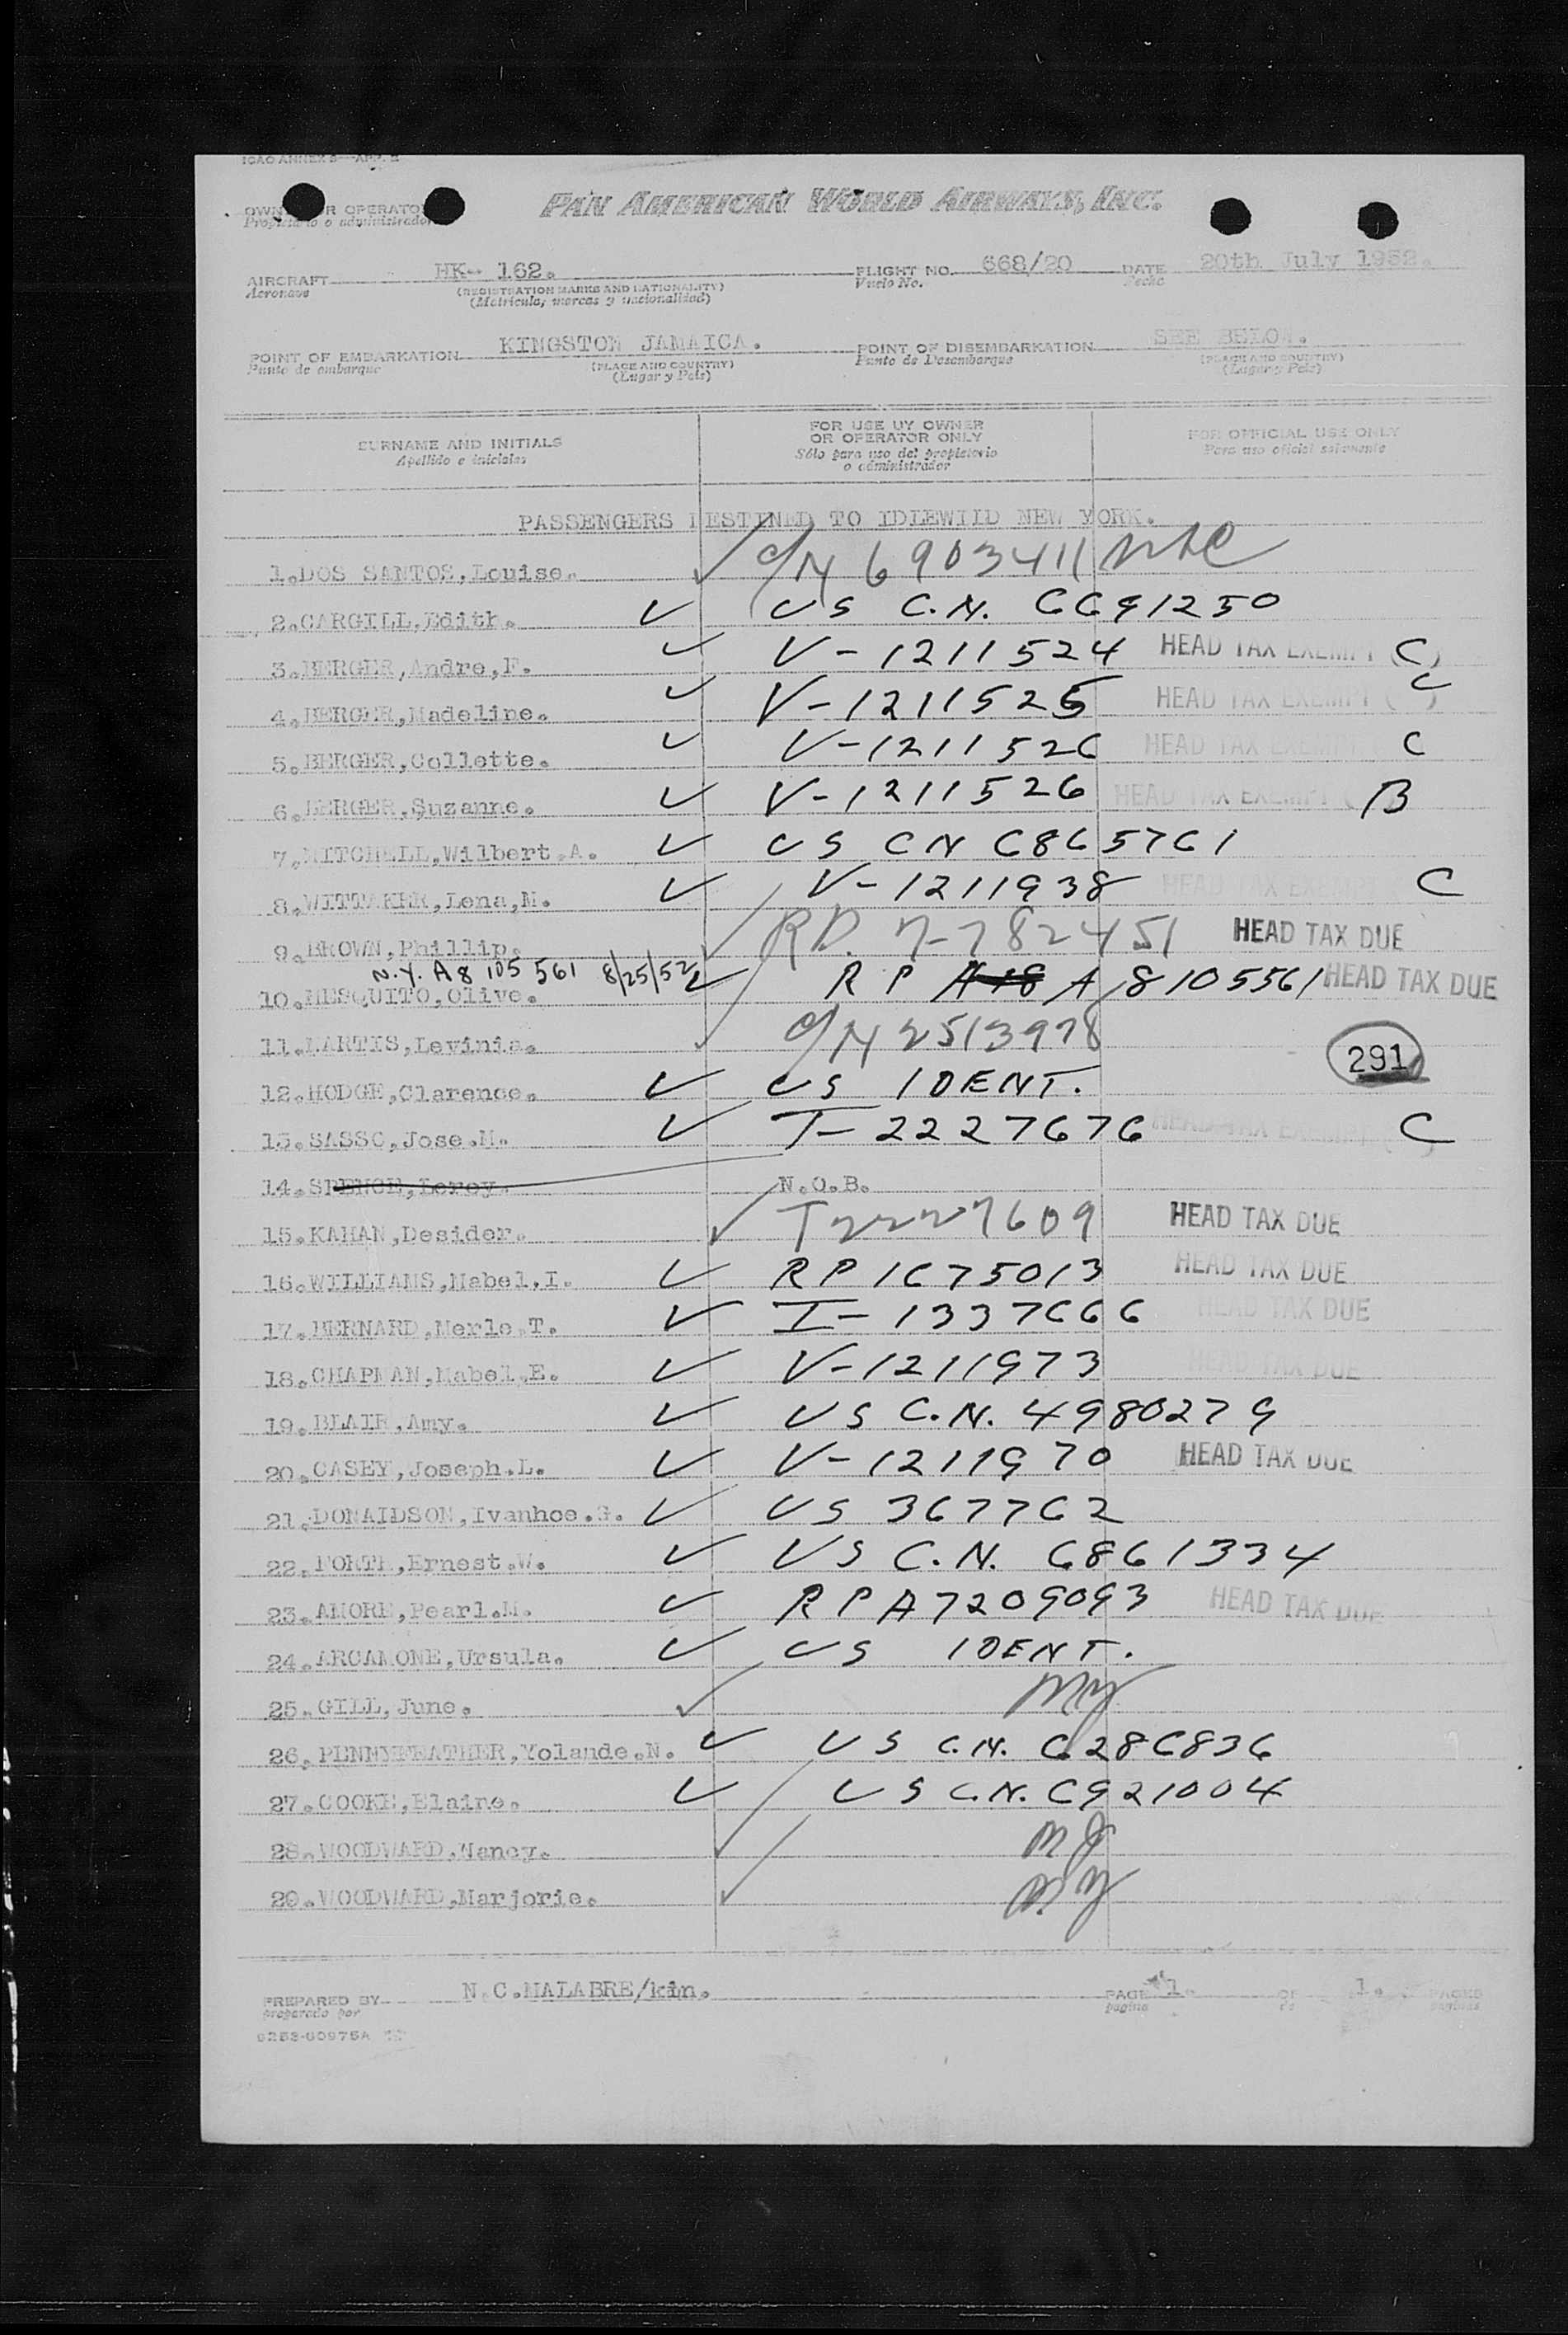 ICAO ANNEX 9—APP. 2
OWNER OR OPERATOR PAN AMERICAN WORLD AIRWAYS, INC.
Propietario o administrador
AIRCRAFT HK- 162. FLIGHT NO. 668/20 DATE 20th July 1952.
Aeronave (REGISTRATION MARKS AND NATIONALITY) Vuelo No. Fecha
(Matricula, marcas y nacionalidad)
POINT OF EMBARKATION KINGSTON JAMAICA. POINT OF DISEMBARKATION SEE BELOW.
Punto de embarque (PLACE AND COUNTRY) Punto de Desembarque (PLACE AND COUNTRY)
(Lugar y País) (Lugar y País)
SURNAME AND INITIALS FOR USE BY OWNER OR OPERATOR ONLY FOR OFFICIAL USE ONLY
Apellido e iniciales Sólo para uso del propietario o administrador Para uso oficial solamente
PASSENGERS DESTINED TO IDLEWILD NEW YORK.
1.DOS SANTOS,Louise. ✓ C/N 6903411
2.CARGILL,Edith. ✓ US C.N. 6691250
3.BERGER,Andre,F. ✓ V-1211524 HEAD TAX EXEMPT (C)
4.BERGER,Madeline. ✓ V-1211525 HEAD TAX EXEMPT (C)
5.BERGER,Collette. ✓ V-1211526 HEAD TAX EXEMPT C
6.BERGER,Suzanne. ✓ V-1211526 HEAD TAX EXEMPT ( B
7.MITCHELL,Wilbert.A. ✓ US CN 6865761
8.WITTAKER,Lena,M. ✓ V-1211938 HEAD TAX EXEMPT C
9.BROWN,Phillip. ✓ RP. 7-782451 HEAD TAX DUE
N.Y. A8 105 561 8/25/52
10.MESQUITO,Olive. ✓ R P A18 A 8105561 HEAD TAX DUE
11.MARTIS,Levinia. ✓ C/N 2513978
291
12.HODGE,Clarence. ✓ US IDENT.
13.SASSO,Jose.M. ✓ T-2227676 HEAD TAX EXEMPT ( C
14.SPENCE,Leroy. N.O.B.
15.KAHAN,Desider. ✓ T2227609 HEAD TAX DUE
16.WILLIAMS,Mabel.I. ✓ RP 1675013 HEAD TAX DUE
17.BERNARD,Merle.T. ✓ I-1337666 HEAD TAX DUE
18.CHAPMAN,Mabel.E. ✓ V-1211973 HEAD TAX DUE
19.BLAIR,Amy. ✓ US C.N. 4980279
20.CASEY,Joseph.L. ✓ V-1211970 HEAD TAX DUE
21.DONALDSON,Ivanhoe.G. ✓ US 367762
22.FORTH,Ernest.W. ✓ US C.N. 6861334
23.AMORE,Pearl.M. ✓ RPA7209093 HEAD TAX DUE
24.ARCAMONE,Ursula. ✓ US IDENT.
25.GILL,June. ✓
26.PENNYFEATHER,Yolande.N. ✓ US C.N. 6286836
27.COOKE,Elaine. ✓ US C.N. 6921004
28.WOODWARD,Nancy. ✓
29.WOODWARD,Marjorie. ✓
PREPARED BY N.C.MALABRE/kin. PAGE 1. OF 1. PAGES
preparado por pagina de paginas
9253-60975A